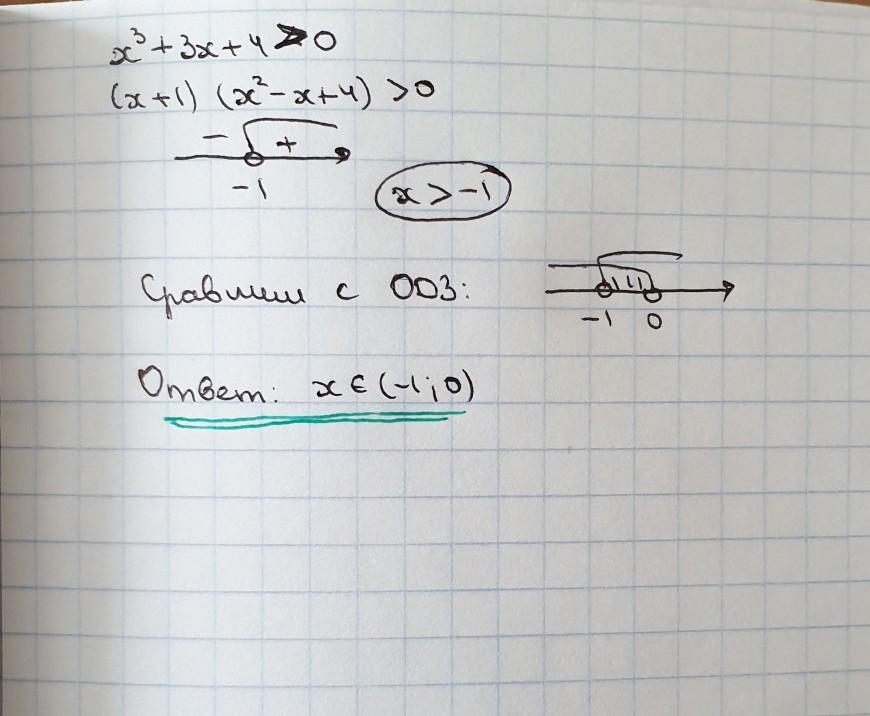 x³ + 3x + 4 > 0
(x+1) (x² - x + 4) > 0
- +
-1
x > -1
Сравним с ОДЗ:
-1 0
Ответ: x ∈ (-1; 0)